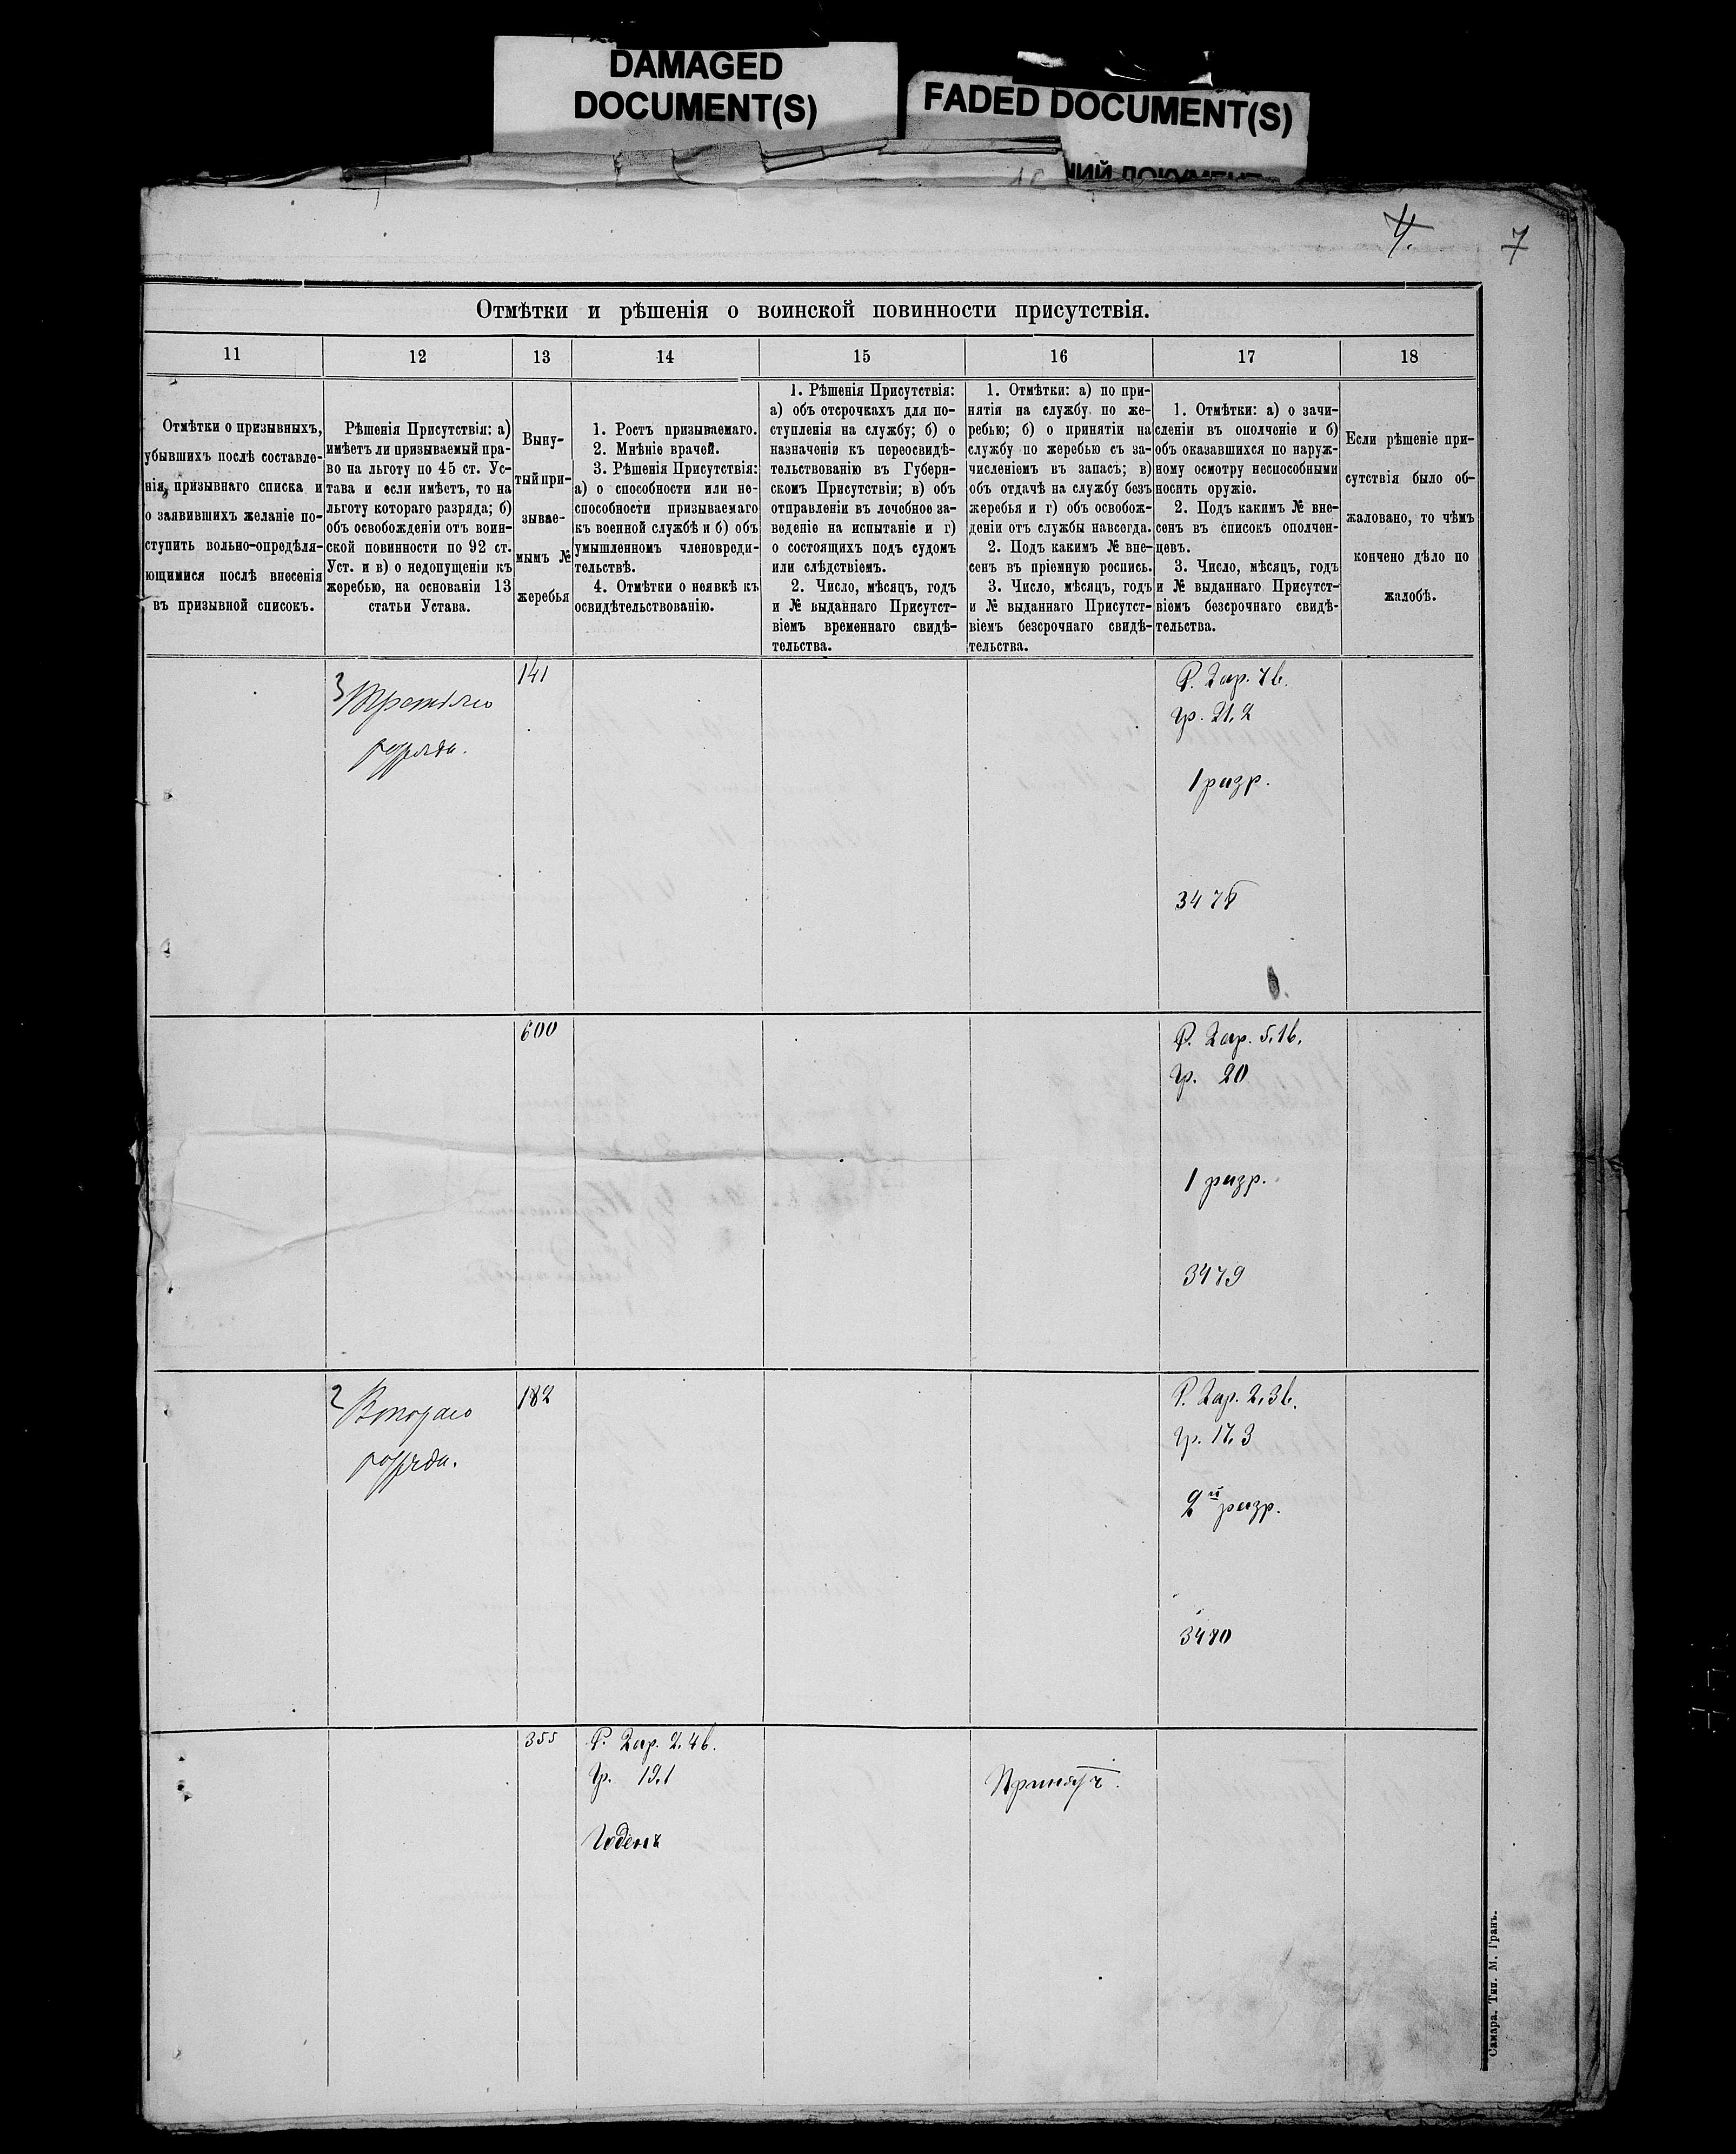 DAMAGED
DOCUMENT(S)
FADED DOCUMENT(S)
4.
7
Отмѣтки и рѣшенія о воинской повинности присутствія.
11
12
13
14
15
16
17
18
Отмѣтки о призывныхъ,
убывшихъ послѣ составле-
нія, призывнаго списка и
о заявившихъ желаніе по-
ступить вольно-опредѣля-
ющимися послѣ внесенія
въ призывной списокъ.
Рѣшенія Присутствія: а)
имѣетъ ли призываемый пра-
во на льготу по 45 ст. Ус-
тава и если имѣетъ, то на
льготу котораго разряда; б)
объ освобожденіи отъ воин-
ской повинности по 92 ст.
Уст. и в) о недопущеніи къ
жеребью, на основаніи 13
статьи Устава.
Выну-
тый при-
зывае-
мымъ №
жеребья
1. Ростъ призываемаго.
2. Мнѣніе врачей.
3. Рѣшенія Присутствія:
а) о способности или не-
способности призываемаго
къ военной службѣ и б) объ
умышленномъ членовреди-
тельствѣ.
4. Отмѣтки о неявкѣ къ
освидѣтельствованію.
1. Рѣшенія Присутствія:
а) объ отсрочкахъ для по-
ступленія на службу; б) о
назначеніи къ переосвидѣ-
тельствованію въ Губерн-
скомъ Присутствіи; в) объ
отправленіи въ лечебное за-
веденіе на испытаніе и г)
о состоящихъ подъ судомъ
или слѣдствіемъ.
2. Число, мѣсяцъ, годъ
и № выданнаго Присутст-
віемъ временнаго свидѣ-
тельства.
1. Отмѣтки: а) по при-
нятіи на службу по же-
ребью; б) о принятіи на
службу по жеребью съ за-
численіемъ въ запасъ; в)
объ отдачѣ на службу безъ
жеребья и г) объ освобож-
деніи отъ службы навсегда.
2. Подъ какимъ № вне-
сенъ въ пріемную роспись.
3. Число, мѣсяцъ, годъ
и № выданнаго Присутст-
віемъ безсрочнаго свидѣ-
тельства.
1. Отмѣтки: а) о зачи-
сленіи въ ополченіе и б)
объ оказавшихся по наруж-
ному осмотру неспособными
носить оружіе.
2. Подъ какимъ № вне-
сенъ въ списокъ ополчен-
цевъ.
3. Число, мѣсяцъ, годъ
и № выданнаго Присутст-
віемъ безсрочнаго свидѣ-
тельства.
Если рѣшеніе при-
сутствія было об-
жаловано, то чѣмъ
кончено дѣло по
жалобѣ.
3 Третьяго
разряда.
141
Р. 2 ар. 7 в.
Гр. 21,2
1 разр.
3478
600
Р. 2 ар. 5,1 в.
Гр. 20
1 разр.
3479
2 Втораго
разряда.
182
Р. 2 ар. 2,3 в.
Гр. 17,3
2й разр.
3480
355
Р. 2 ар. 2,4 в.
Гр. 19,1
Годенъ
Принятъ.
Самара. Тип. М. Гранъ.